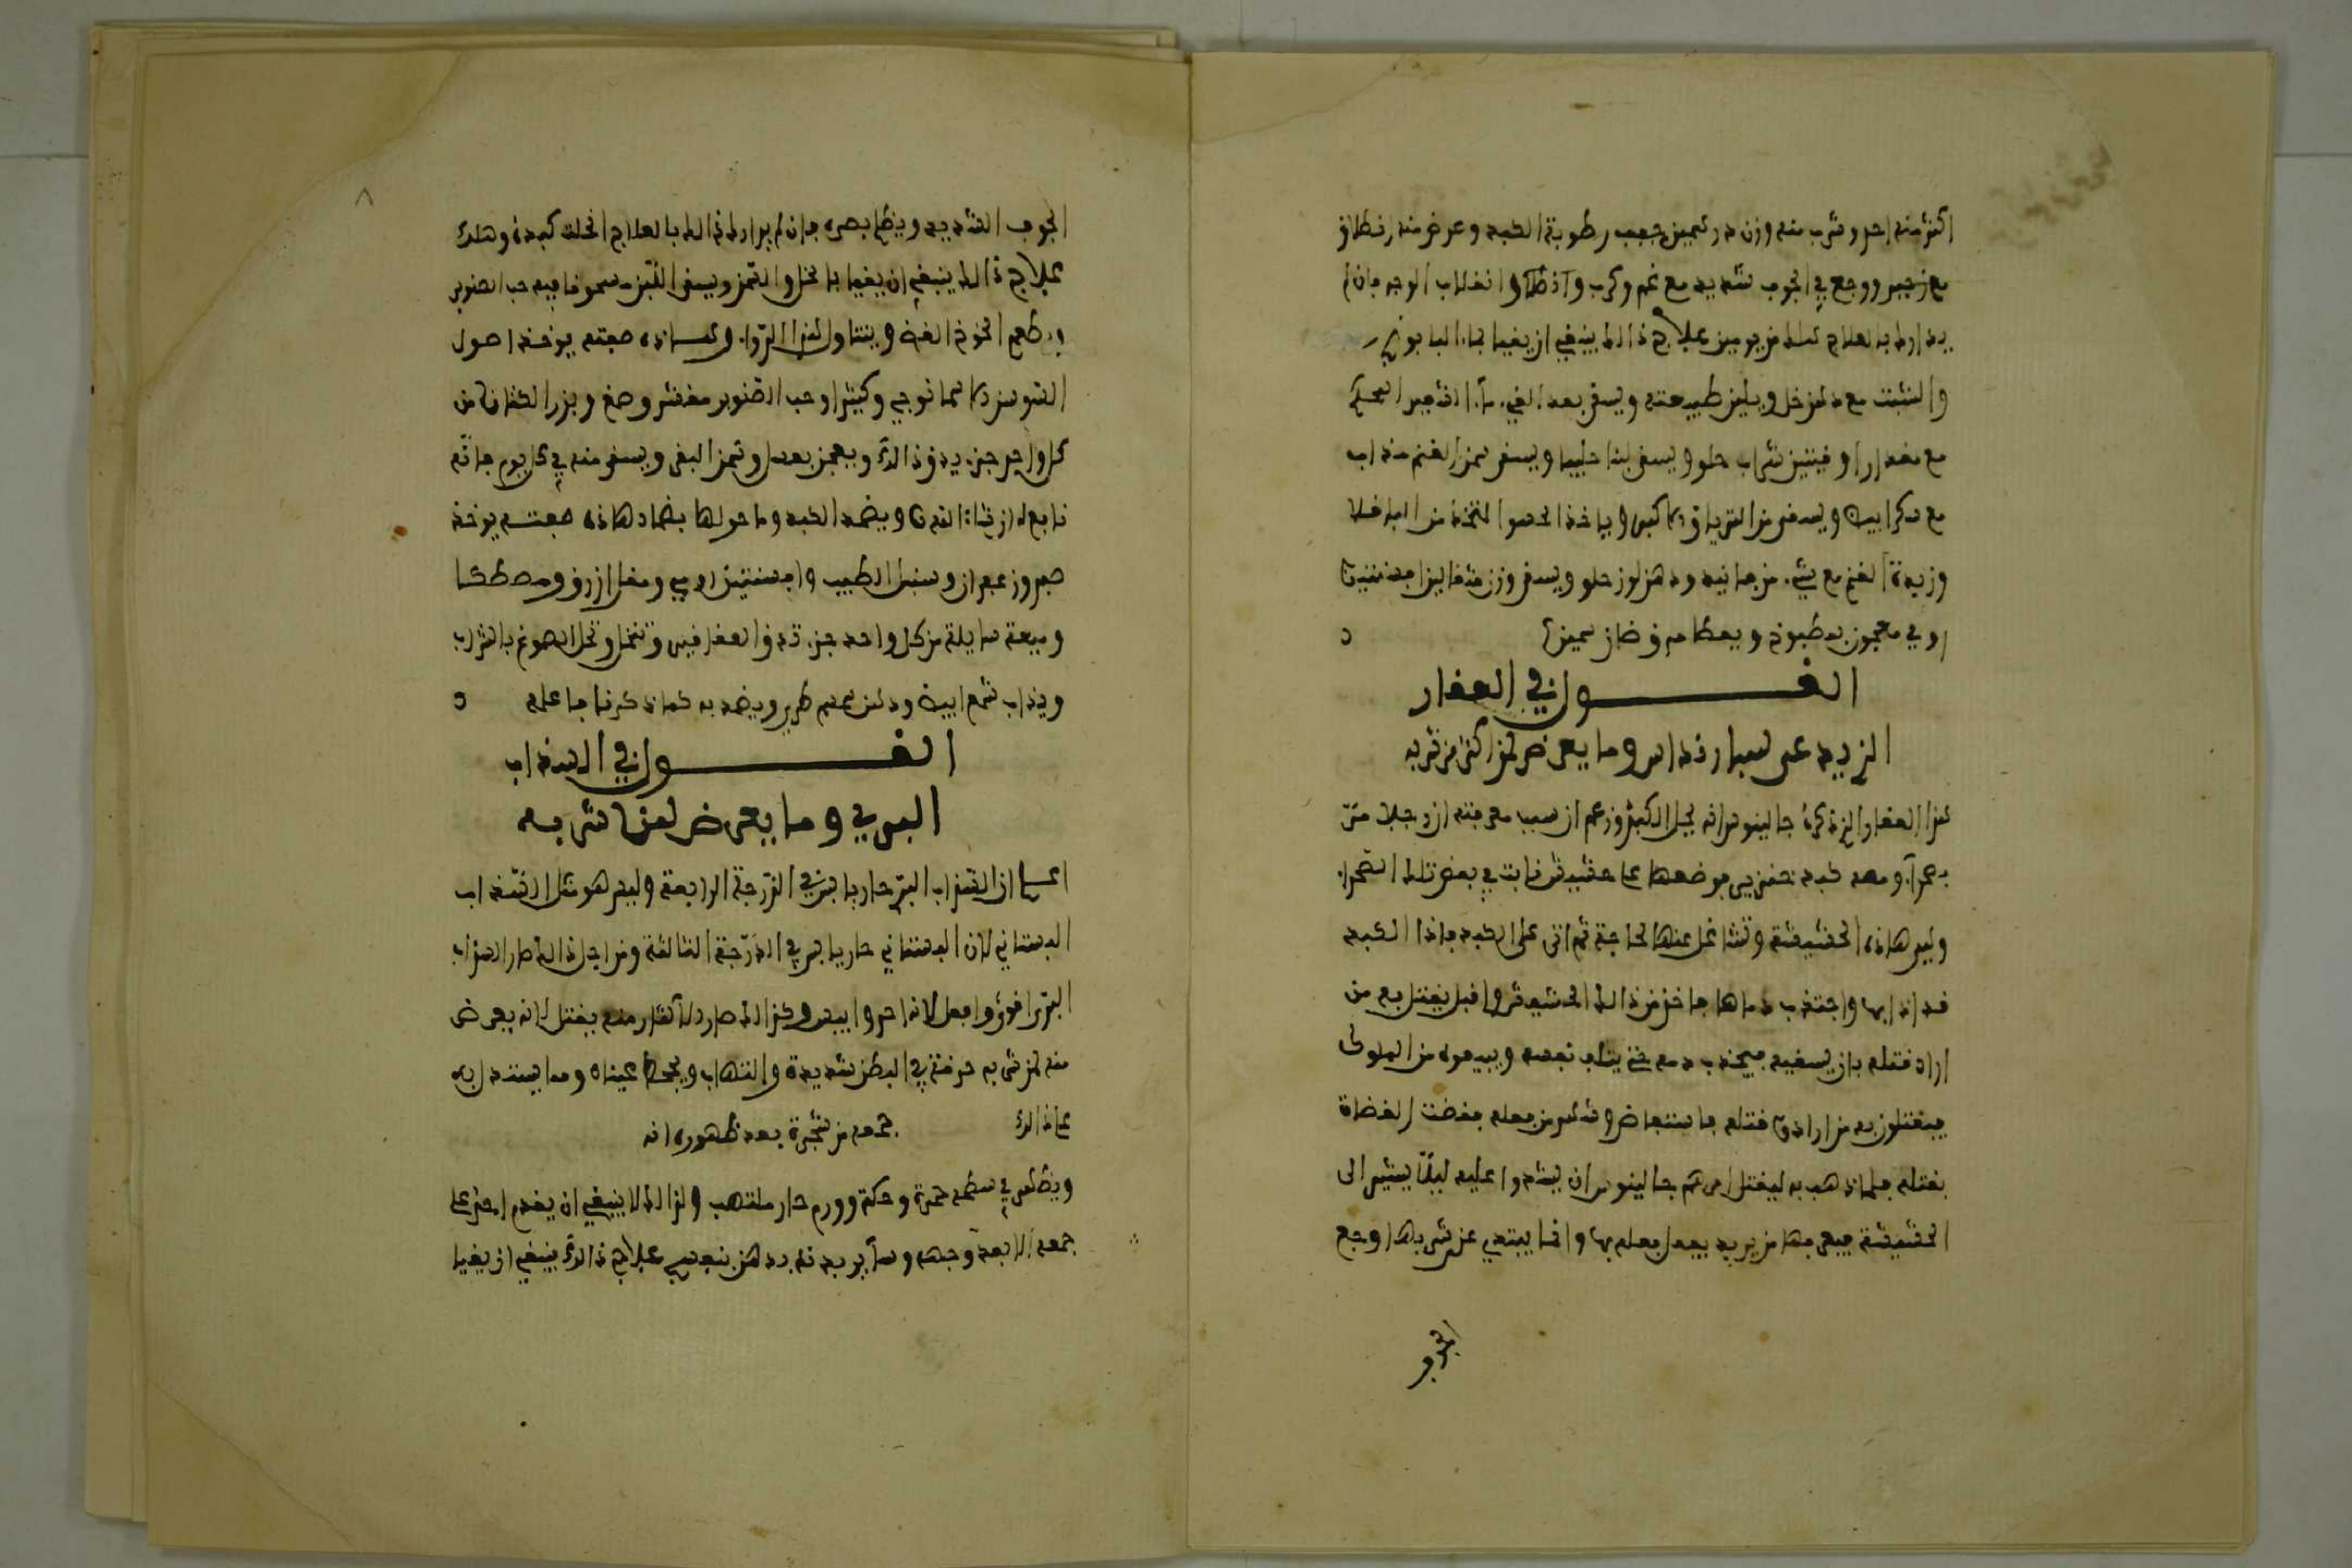 اكثر منه احر وشرب منه وزن درهمين جعب رطوبة الكبد وعرض منه انطلاق
مع زحير ووجع في الجوف شديد مع غم وكرب وانقلاب الوجه فان لم
يدارك بالعلاج هلك من يومين علاج ذالك ينبغي ان يقيا بماء البابونج
والشبث مع دهن خل ويلين طبيعته ويسقى بعد القيء ماء الشعير المحكم
مع مقدار اوقيتين شراب حلو ويسقى لبنا حليبا ويسقى سمن الغنم مذاب
مع سكر ابيض ويسقى من الترياق الاكبر وياخذ الحسو المتخذ من الباقلا
وزبدة الغنم مع شيء من فانيد ودهن لوز حلو ويسقى وزن مثقالين افسنتين
رومي معجون بمطبوخ ويعطا مرق ضان سمين
القول في العقار
الزيد على سبا رنداس وما يعرض لمن اكثر من شربه
هذا العقار الذي ذكره جالينوس انه بجبل الكبير وزعم ان سبب معرفته ان رجلا مر
بصحراء ومعه كبد خنزير فوضعها على حشيش نابت في بعض تلك الصحراء
وليس هاذه الحشيشة وتشاغل عنها لحاجة ثم اتى على الكبد فاذا الكبد
قد اذابها واجتذب دماها فاخذ من ذالك الحشيش واقبل يقتل به من
اراد قتله بان يسقيه فيجذب دمه حتى يتلف نفسه ويبيعوه من الملوك
فيقتلون به من ارادوا قتله فاستفاض وشهر من فعله فقضت القضاة
بقتله فلما ذهب به ليقتل امرهم جالينوس ان يشدوا عليه ليلا يشير الى
الحشيشة فيعرفها من يريد يفعل فعله بها وانما يبتدي عن شربها وجع
الجوف
الجوف الشديد ويظلم بصره فان لم يدارك ذالك بالعلاج انحلت كبده وهلك
علاج ذالك ينبغي ان يقيا بالخل والتمر ويسقى اللبن مسحوقا فيه حب الصنوبر
ويطعم الخوخ الغض ويتناول هذا الدواء وهاذه صفته يوخذ اصول
السوسن الاسمانجوني وكثيرا وحب الصنوبر مقشر وصمغ وبزر الكتان من
كل واحد جزء يدق ذالك ويعجن بعسل وسمن البقر ويسقى منه في كل يوم فانه
نافع له ان شاء الله ويضمد الكبد وما حولها بضماد هاذه صفته يوخذ
صبر وزعفران وسنبل الطيب وافسنتين رومي ومقل ازرق ومصطكا
وميعة سايلة من كل واحد جزء تدق العقاقير وتنخل وتحل الصموغ بالشراب
ويذاب شمع ابيض ودهن سمسم طري ويضمد به كما ذكرنا فاعلم
القول في السذاب
البري وما يعرض لمن شربه
اعلم ان السذاب البري حار يابس في الدرجة الرابعة وليس هو مثل السذاب
البستاني لان البستاني حار يابس في الدرجة الثالثة ومن اجل ذالك صار السذاب
البري اقوى وافعل لانه احر وايبس وكذالك صار الاكثار منه يقتل لانه يعرض
منه لمن شربه حرقة في البطن شديدة والتهاب ويجحظ عيناه ومما يستدل به
على ذالك جمعه من شجرة بعد ظهوره انه
ويظهر في سطحه حمرة وحكة وورم حار ملتهب ولذالك لا ينبغي ان يقدم احد على
جمعه الا بعد وجهه وساير بدنه بدهن بنفسج علاج ذالك ينبغي ان يقيا